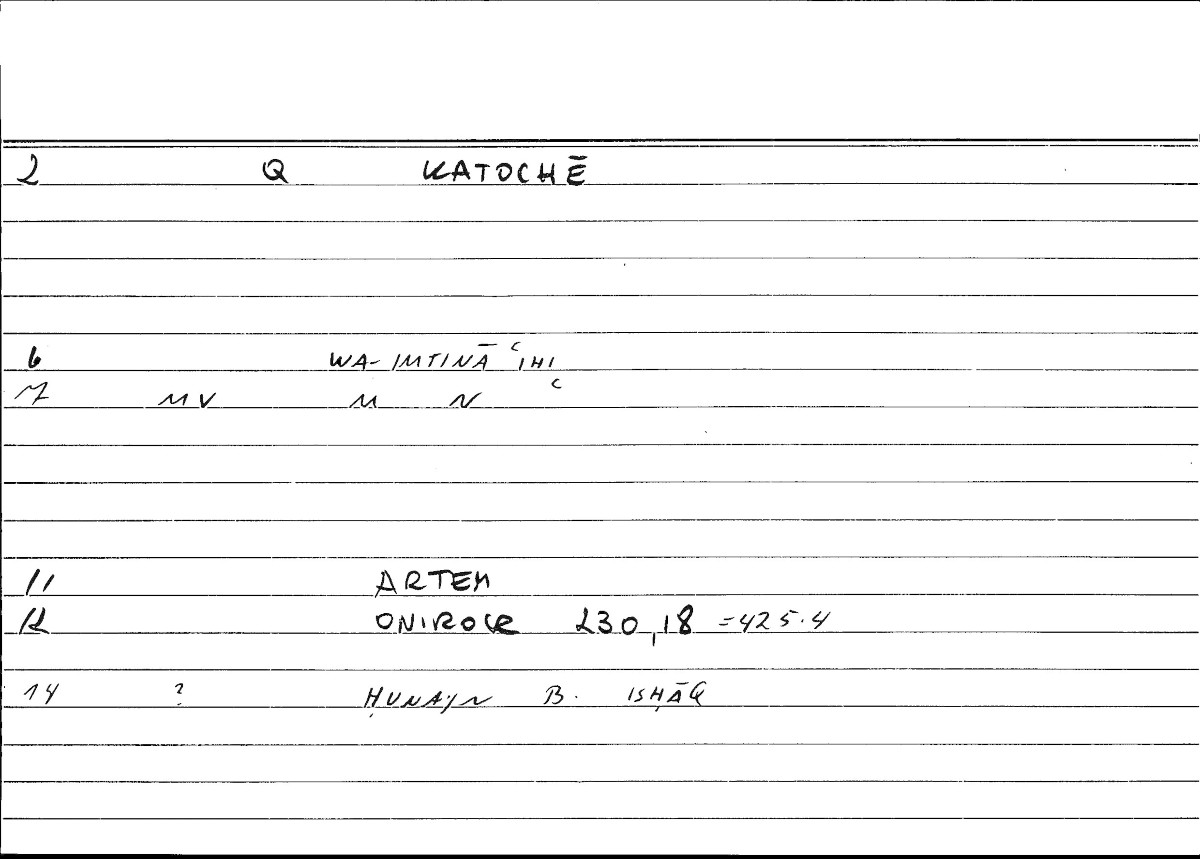 2 Q KATOCHĒ
6 WA-IMTINĀ ʿIHI
7 MV M N ʿ
11 ARTEM
12 ONIROCR 230,18 =425.4
14 ? ḤUNAYN B. ISḤĀQ